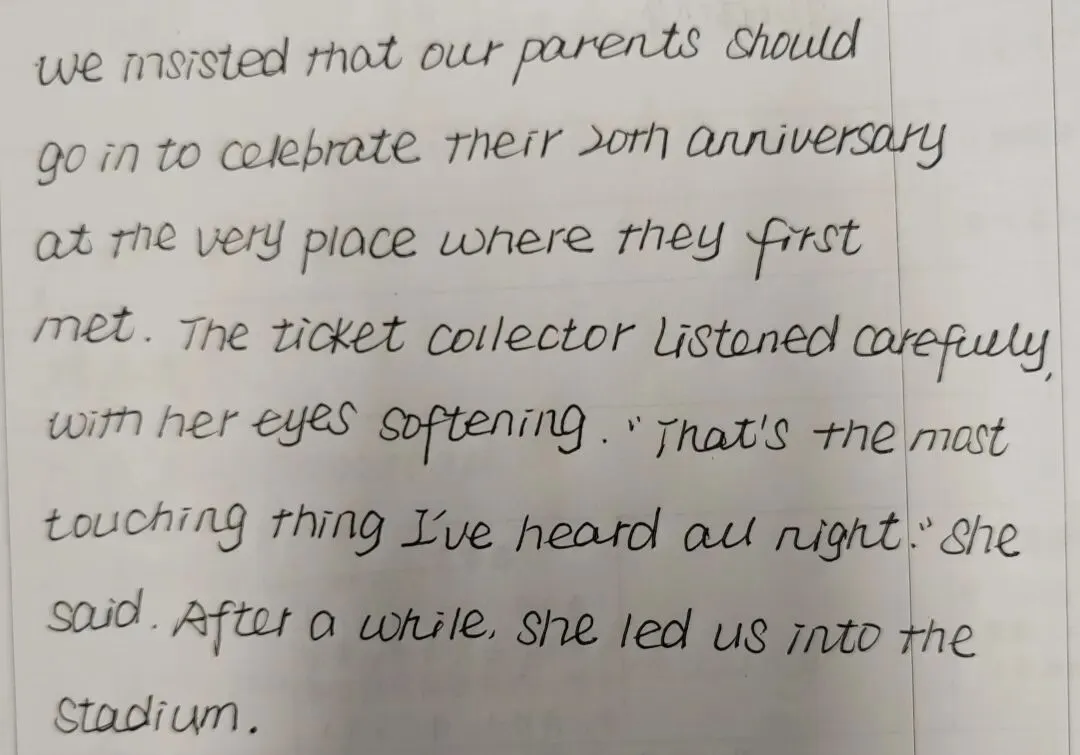 we insisted that our parents should
go in to celebrate their 20th anniversary
at the very place where they first
met. The ticket collector listened carefully,
with her eyes softening. "That's the most
touching thing I've heard all night." She
said. After a while, she led us into the
stadium.